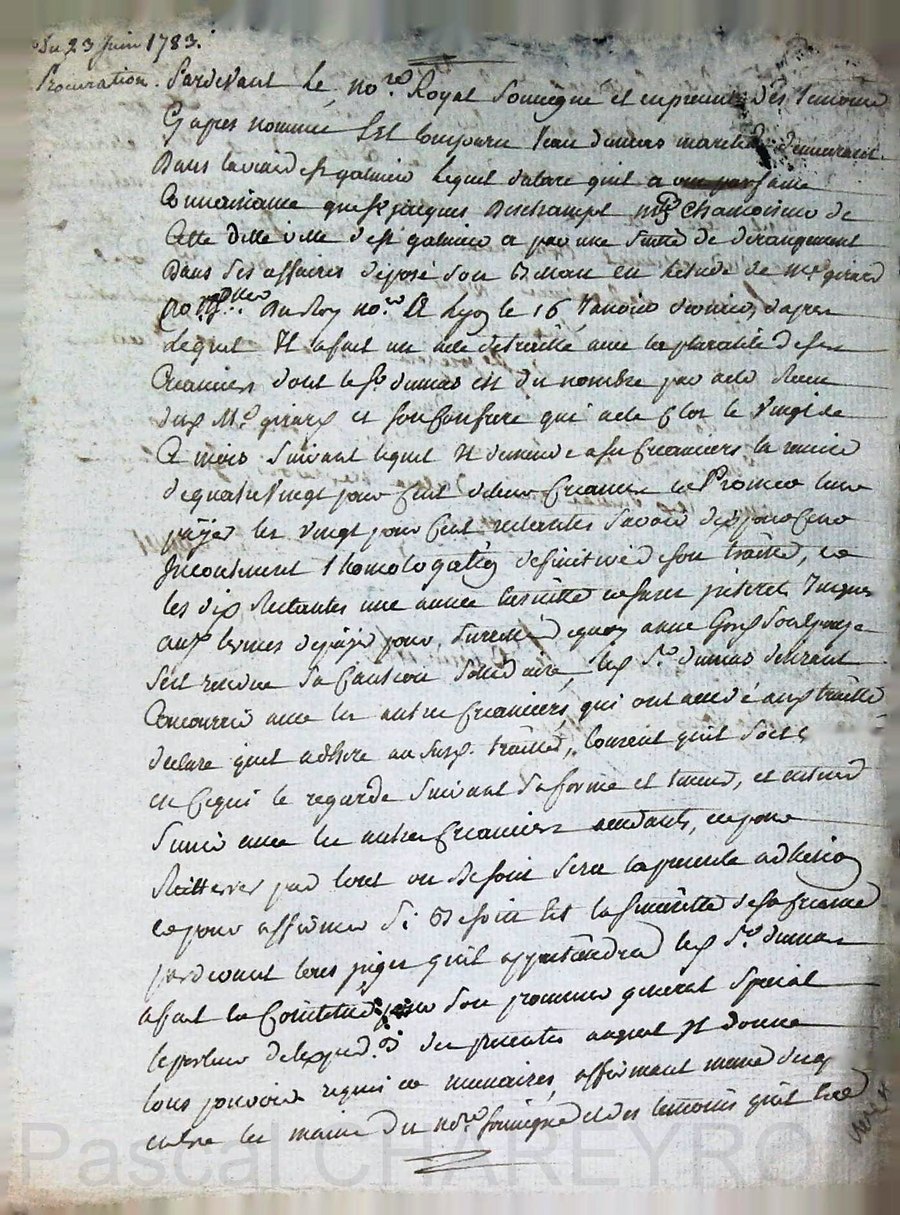 Du 23 Juin 1783.
Procuration. Pardevant Le no.re Royal Soussigné et en presence des Temoins
Cy apres nommés Est Comparu Jean dumas marchand demeurant
Dans la ville de st galmier Lequel declare quil a une parfaite
Connaissance que sr jacques Deschamps md Chamoiseur de
Cette ditte ville de st galmier a par une suitte de derangement
Dans ses affaires deposé son Bilan en Letude de me girard
Du Roy no.re A Lyon le 16 Janvier dernier, dapres
Lequel Il a fait un acte de traitté avec la pluralité de ses
Creanciers dont le sr dumas est du nombre par acte Recu
dud Me girard et son Confrere qui acte Clos le Vingt de
Ce mois Suivant lequel Il demande a ses Creanciers la remise
de quatre Vingt pour Cent de leur Creances et Promet leur
payer les Vingt pour Cent restantes Savoir dix pour Cent
Incontinent l'homologation definitive de son traitté, et
les dix Restantes une année ensuitte et sans interets Jusques
aux termes de payer pour Sureté de quoy anne Son Epouse
sest rendue Sa Caution Solidaire, led Sr dumas desirant
Concourir avec les autres Creanciers qui ont accedé aud traitté
declare quil adhere au susd traitté, Consent quil Sorte
en Cequi le regarde Suivant Sa forme et teneur, et entend
Sunir avec les autres Creanciers adherants, et pour
Reitterer par tout ou Besoin Sera la presente adhesion
et pour affirmer Si Besoin Est la sincerité de sa Creance
pardevant tous juges quil appartiendra led Sr dumas
a fait et Constitué pour Son procureur general Special
le porteur de lexped.on des presentes auquel Il donne
tous pouvoirs requis et necessaires, affirmant meme
entre les mains du no.re soussigné et des temoins quil
Pascal CHAREYRON